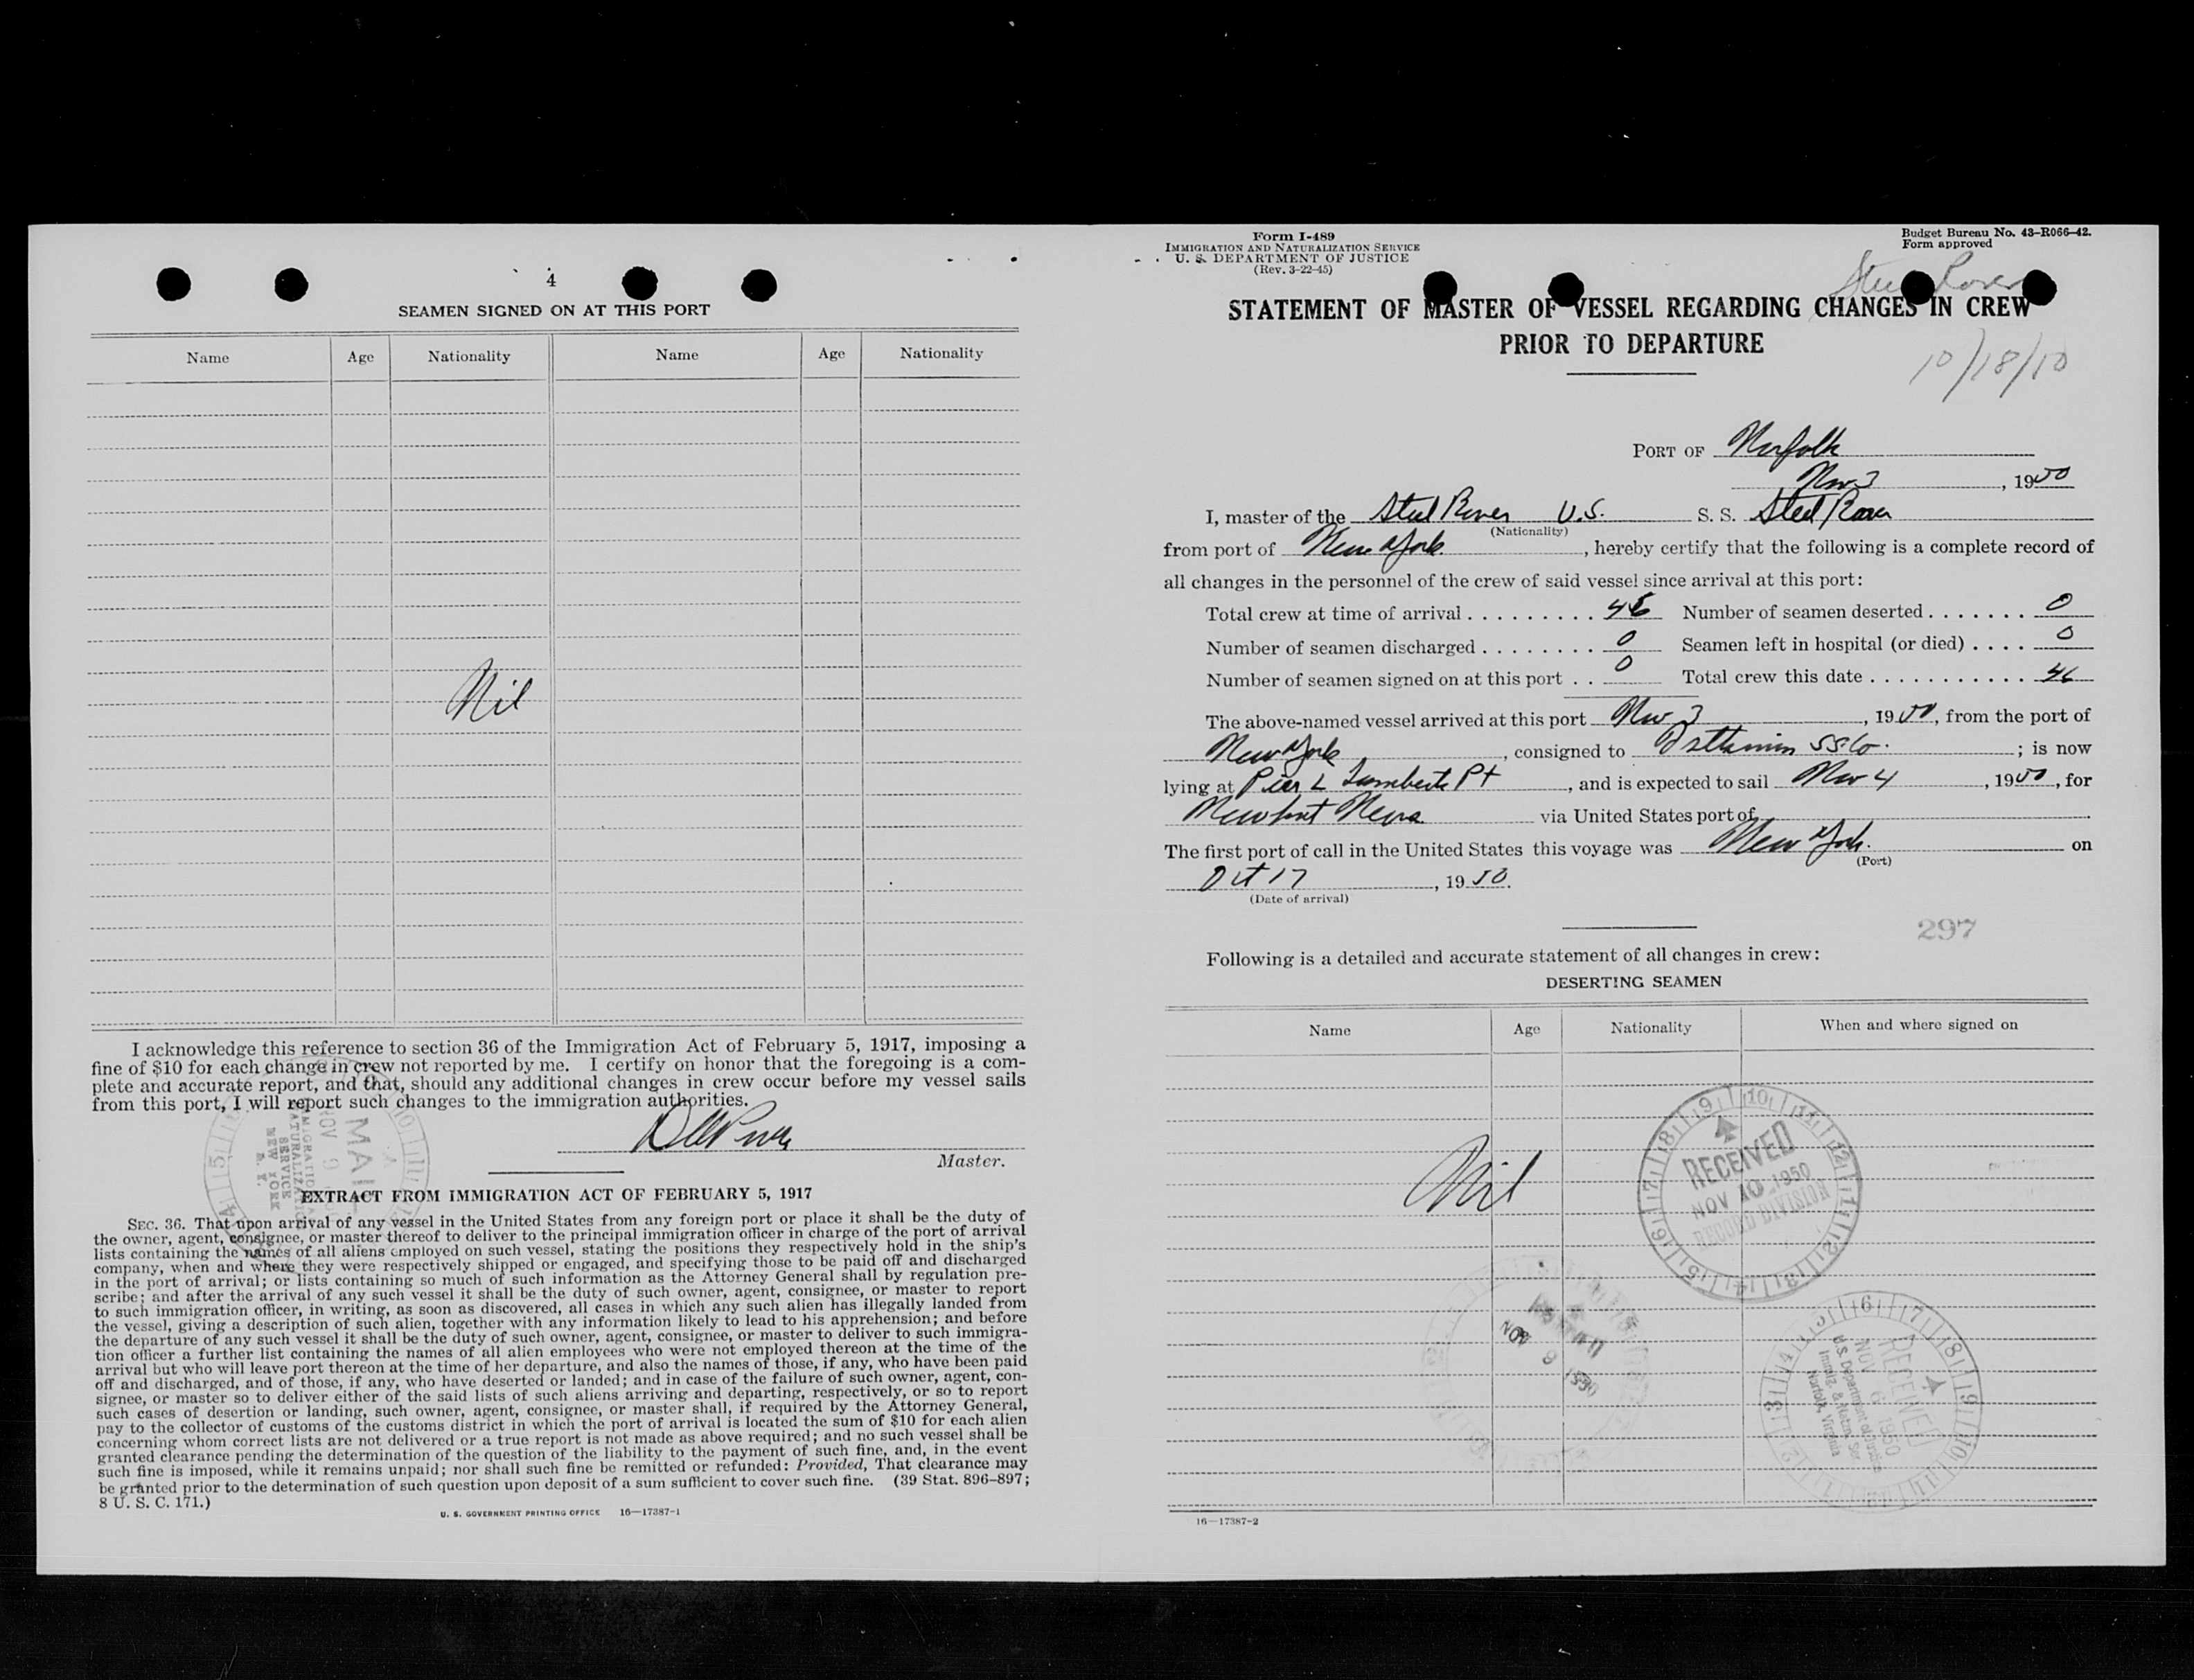 4
SEAMEN SIGNED ON AT THIS PORT
Name Age Nationality Name Age Nationality
Nil
I acknowledge this reference to section 36 of the Immigration Act of February 5, 1917, imposing a
fine of $10 for each change in crew not reported by me. I certify on honor that the foregoing is a com-
plete and accurate report, and that, should any additional changes in crew occur before my vessel sails
from this port, I will report such changes to the immigration authorities.
Master.
MAIL
NOV 9
IMMIGRATION
NATURALIZATION
SERVICE
NEW YORK
N. Y.
EXTRACT FROM IMMIGRATION ACT OF FEBRUARY 5, 1917
SEC. 36. That upon arrival of any vessel in the United States from any foreign port or place it shall be the duty of
the owner, agent, consignee, or master thereof to deliver to the principal immigration officer in charge of the port of arrival
lists containing the names of all aliens employed on such vessel, stating the positions they respectively hold in the ship's
company, when and where they were respectively shipped or engaged, and specifying those to be paid off and discharged
in the port of arrival; or lists containing so much of such information as the Attorney General shall by regulation pre-
scribe; and after the arrival of any such vessel it shall be the duty of such owner, agent, consignee, or master to report
to such immigration officer, in writing, as soon as discovered, all cases in which any such alien has illegally landed from
the vessel, giving a description of such alien, together with any information likely to lead to his apprehension; and before
the departure of any such vessel it shall be the duty of such owner, agent, consignee, or master to deliver to such immigra-
tion officer a further list containing the names of all alien employees who were not employed thereon at the time of the
arrival but who will leave port thereon at the time of her departure, and also the names of those, if any, who have been paid
off and discharged, and of those, if any, who have deserted or landed; and in case of the failure of such owner, agent, con-
signee, or master so to deliver either of the said lists of such aliens arriving and departing, respectively, or so to report
such cases of desertion or landing, such owner, agent, consignee, or master shall, if required by the Attorney General,
pay to the collector of customs of the customs district in which the port of arrival is located the sum of $10 for each alien
concerning whom correct lists are not delivered or a true report is not made as above required; and no such vessel shall be
granted clearance pending the determination of the question of the liability to the payment of such fine, and, in the event
such fine is imposed, while it remains unpaid; nor shall such fine be remitted or refunded: Provided, That clearance may
be granted prior to the determination of such question upon deposit of a sum sufficient to cover such fine. (39 Stat. 896-897;
8 U. S. C. 171.)
U. S. GOVERNMENT PRINTING OFFICE 16—17387-1
Form I-489
IMMIGRATION AND NATURALIZATION SERVICE
U. S. DEPARTMENT OF JUSTICE
(Rev. 3-22-45)
Budget Bureau No. 43-R066-42.
Form approved
Steel Rover
STATEMENT OF MASTER OF VESSEL REGARDING CHANGES IN CREW
PRIOR TO DEPARTURE
10/18/50
PORT OF Norfolk
Nov 3, 1950
I, master of the Steel Rover U.S. S. S. Steel Rover
(Nationality)
from port of New York, hereby certify that the following is a complete record of
all changes in the personnel of the crew of said vessel since arrival at this port:
Total crew at time of arrival 46 Number of seamen deserted 0
Number of seamen discharged 0 Seamen left in hospital (or died) 0
Number of seamen signed on at this port 0 Total crew this date 46
The above-named vessel arrived at this port Nov 3, 1950, from the port of
New York, consigned to Isthmian SS Co.; is now
lying at Pier L Lamberts Pt, and is expected to sail Nov 4, 1950, for
Newport News via United States port of
The first port of call in the United States this voyage was New York. on
(Port)
Oct 17, 1950.
(Date of arrival)
297
Following is a detailed and accurate statement of all changes in crew:
DESERTING SEAMEN
Name Age Nationality When and where signed on
Nil
RECEIVED
NOV 10 1950
RECORD DIVISION
NOV 9 1950
RECEIVED
NOV 6 1950
U.S. Department of Justice
Immig. & Natzn. Ser.
Norfolk, Virginia
16—17387-2